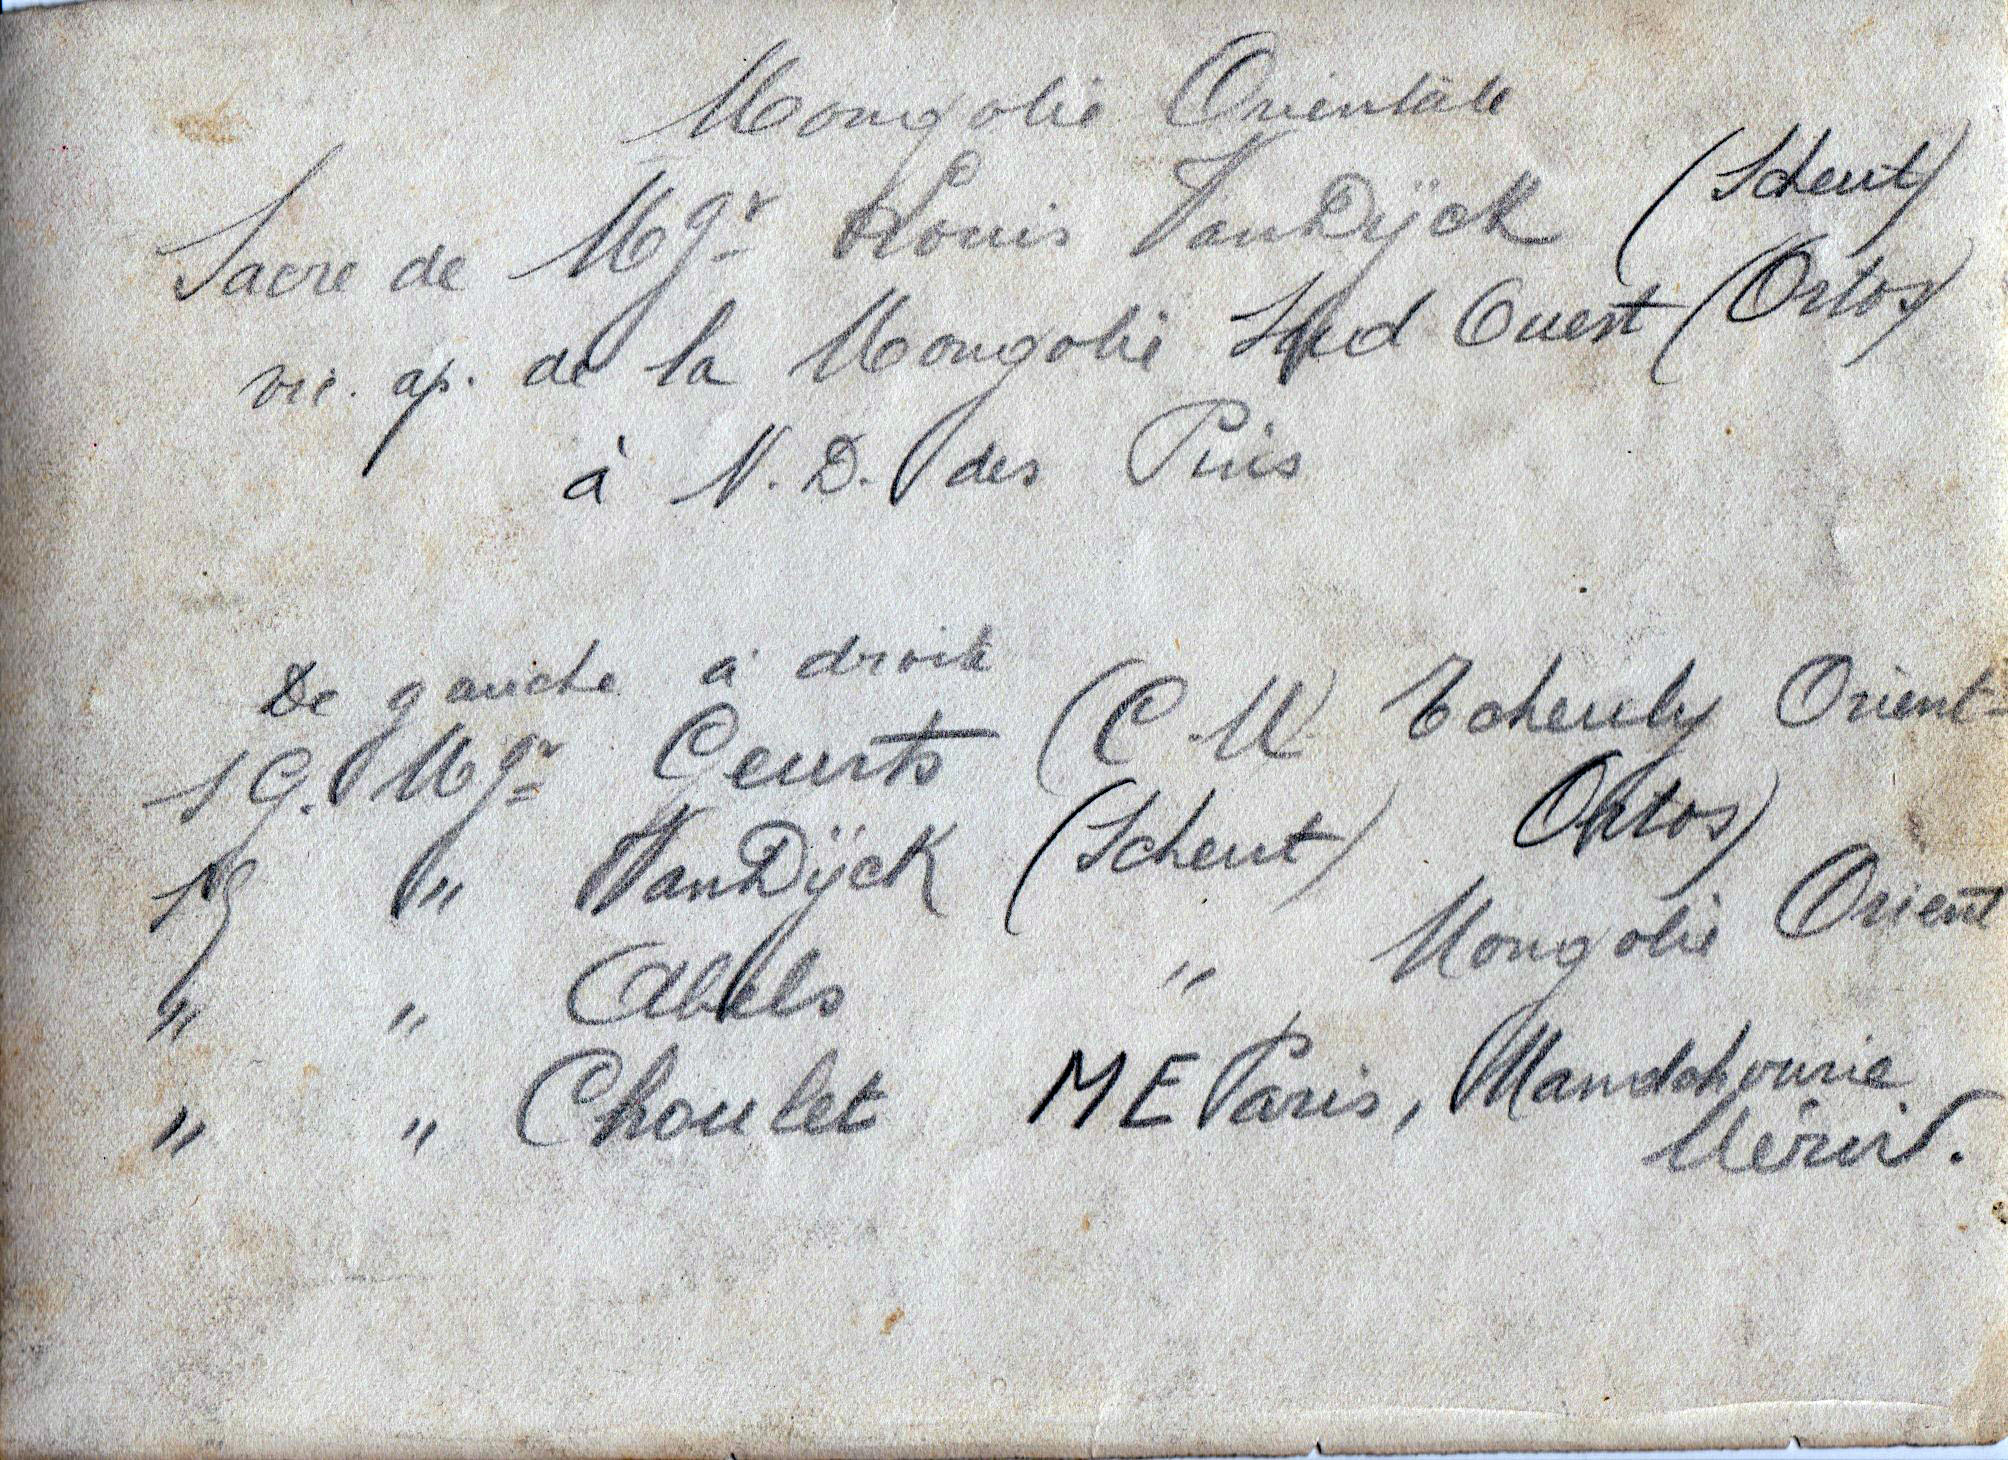 Mongolie Orientale
Sacre de Mgr Louis VanDÿck (Scheut)
vic. ap. de la Mongolie Sud Ouest (Ortos)
à N. D. des Pins
De gauche à droite
S G. Mgr Geurts (C M) Tchenly Orient
SG " VanDÿck (Scheut) Ortos)
" " Abels " Mongolie Orient
" " Choulet M E Paris, Mandchourie
Mérid.